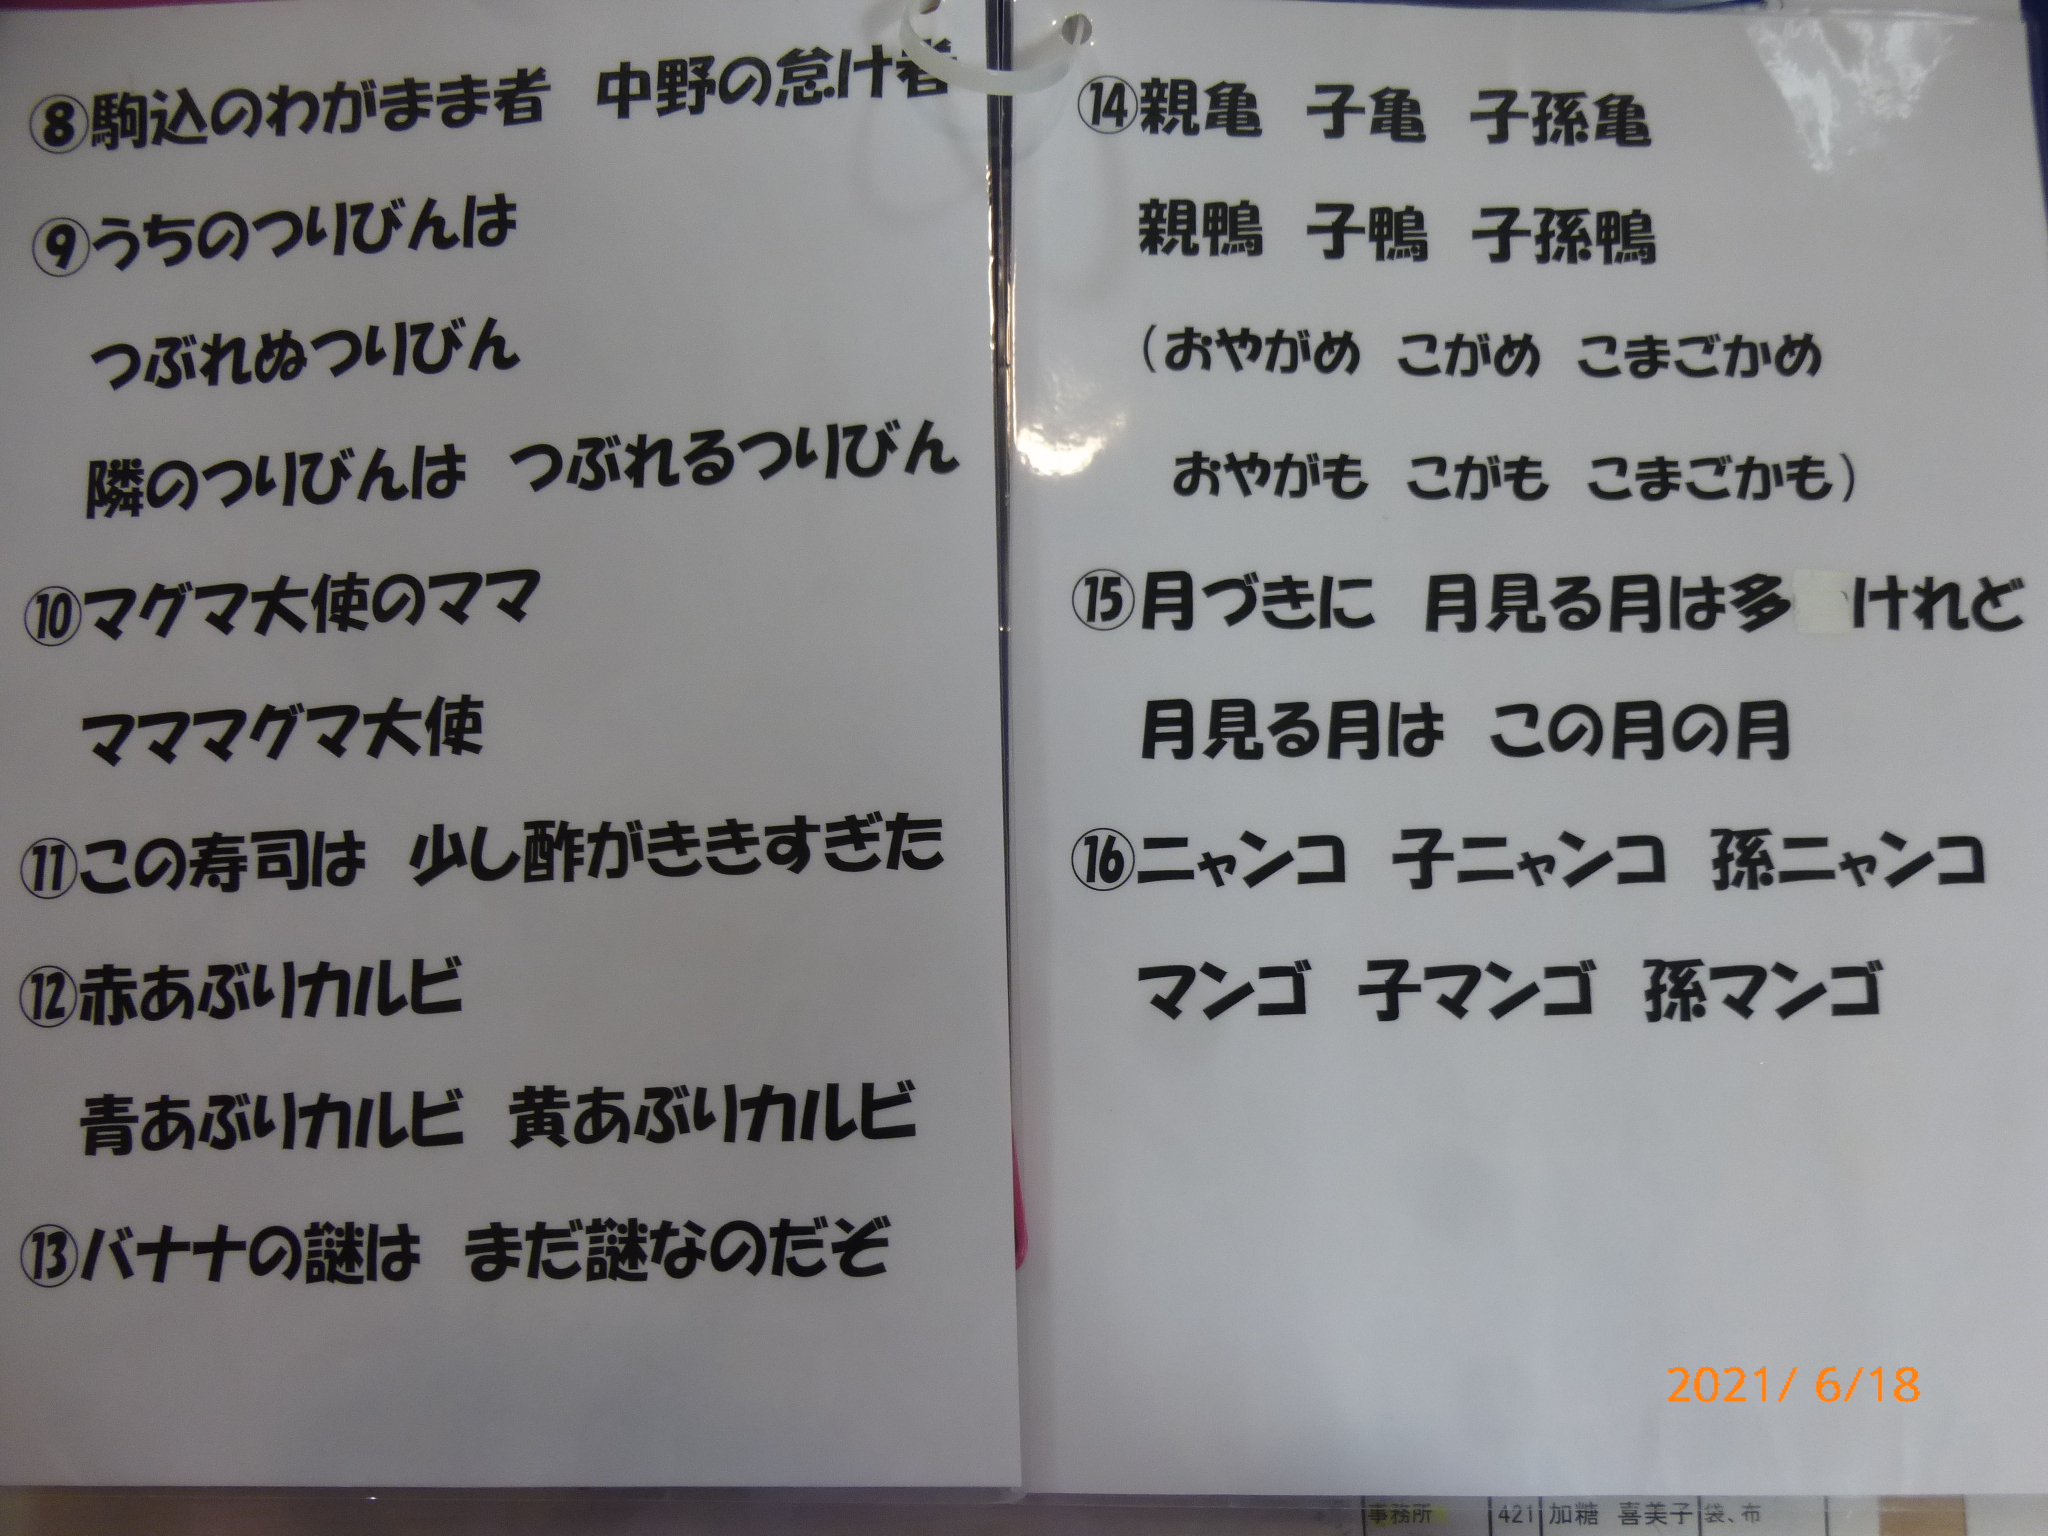 ⑧駒込のわがまま者　中野の怠け者
⑨うちのつりびんは
つぶれぬつりびん
隣のつりびんは　つぶれるつりびん
⑩マグマ大使のママ
ママママグマ大使
⑪この寿司は　少し酢がききすぎた
⑫赤あぶりカルビ
青あぶりカルビ　黄あぶりカルビ
⑬バナナの謎は　まだ謎なのだぞ
⑭親亀　子亀　子孫亀
親鴨　子鴨　子孫鴨
（おやがめ　こがめ　こまごかめ
おやがも　こがも　こまごかも）
⑮月づきに　月見る月は多　けれど
月見る月は　この月の月
⑯ニャンコ　子ニャンコ　孫ニャンコ
マンゴ　子マンゴ　孫マンゴ
2021/ 6/18
事務所　421　加糖　喜美子　袋、布